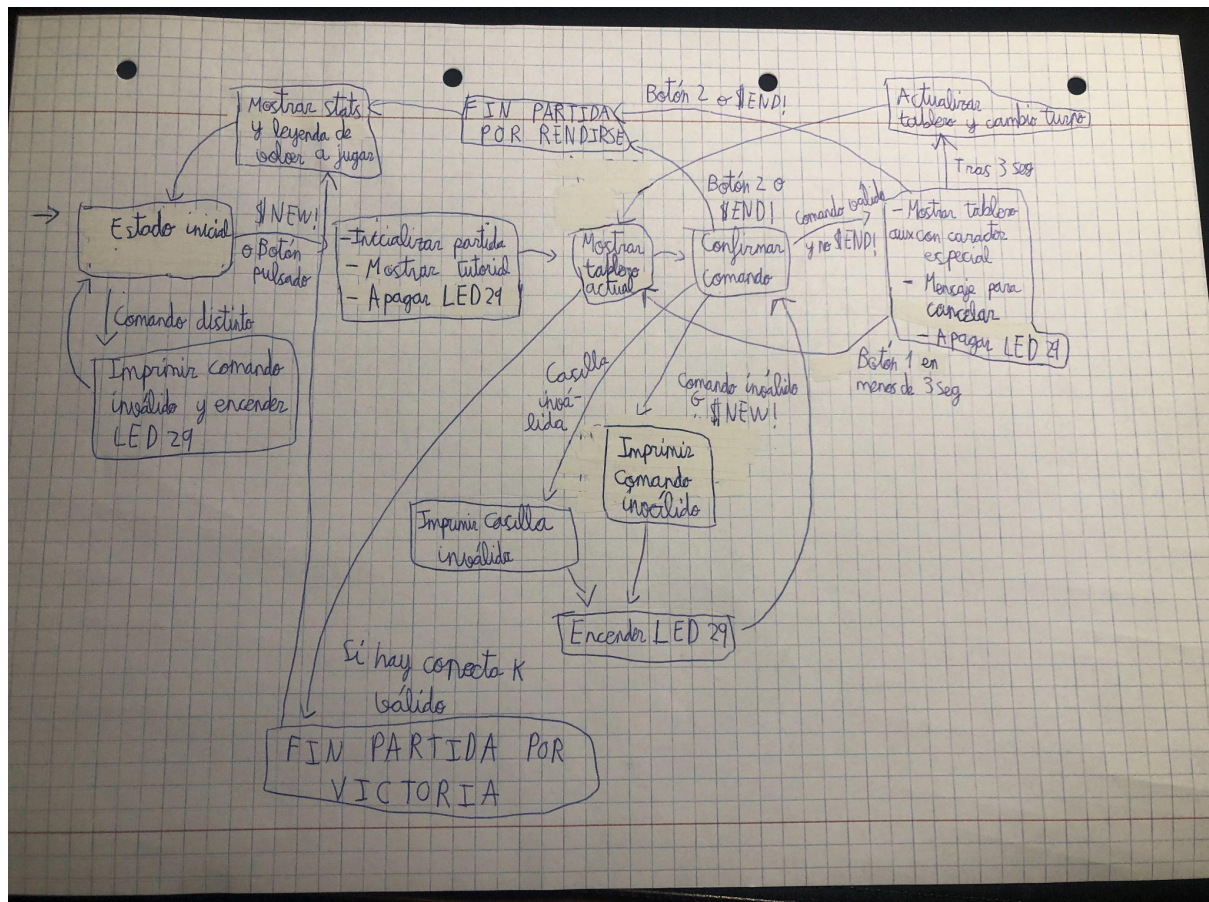 Mostrar stats
y leyenda de
volver a jugar
FIN PARTIDA
POR RENDIRSE
Botón 2 o $END!
Actualizar
tablero y cambio turno
Tras 3 seg
Estado inicial
$NEW!
o Botón
pulsado
-Inicializar partida
- Mostrar tutorial
- Apagar LED 29
Mostrar
tablero
actual
Botón 2 o
$END!
Confirmar
comando
Comando válido
y no $END!
- Mostrar tablero
aux con carácter
especial
- Mensaje para
cancelar
- Apagar LED 29
Botón 1 en
menos de 3 seg
Comando distinto
Imprimir comando
inválido y encender
LED 29
Casilla
invá-
lida
Comando inválido
ó $NEW!
Imprimir
Comando
inválido
Imprimir Casilla
inválida
Encender LED 29
Si hay conecta K
válido
FIN PARTIDA POR
VICTORIA